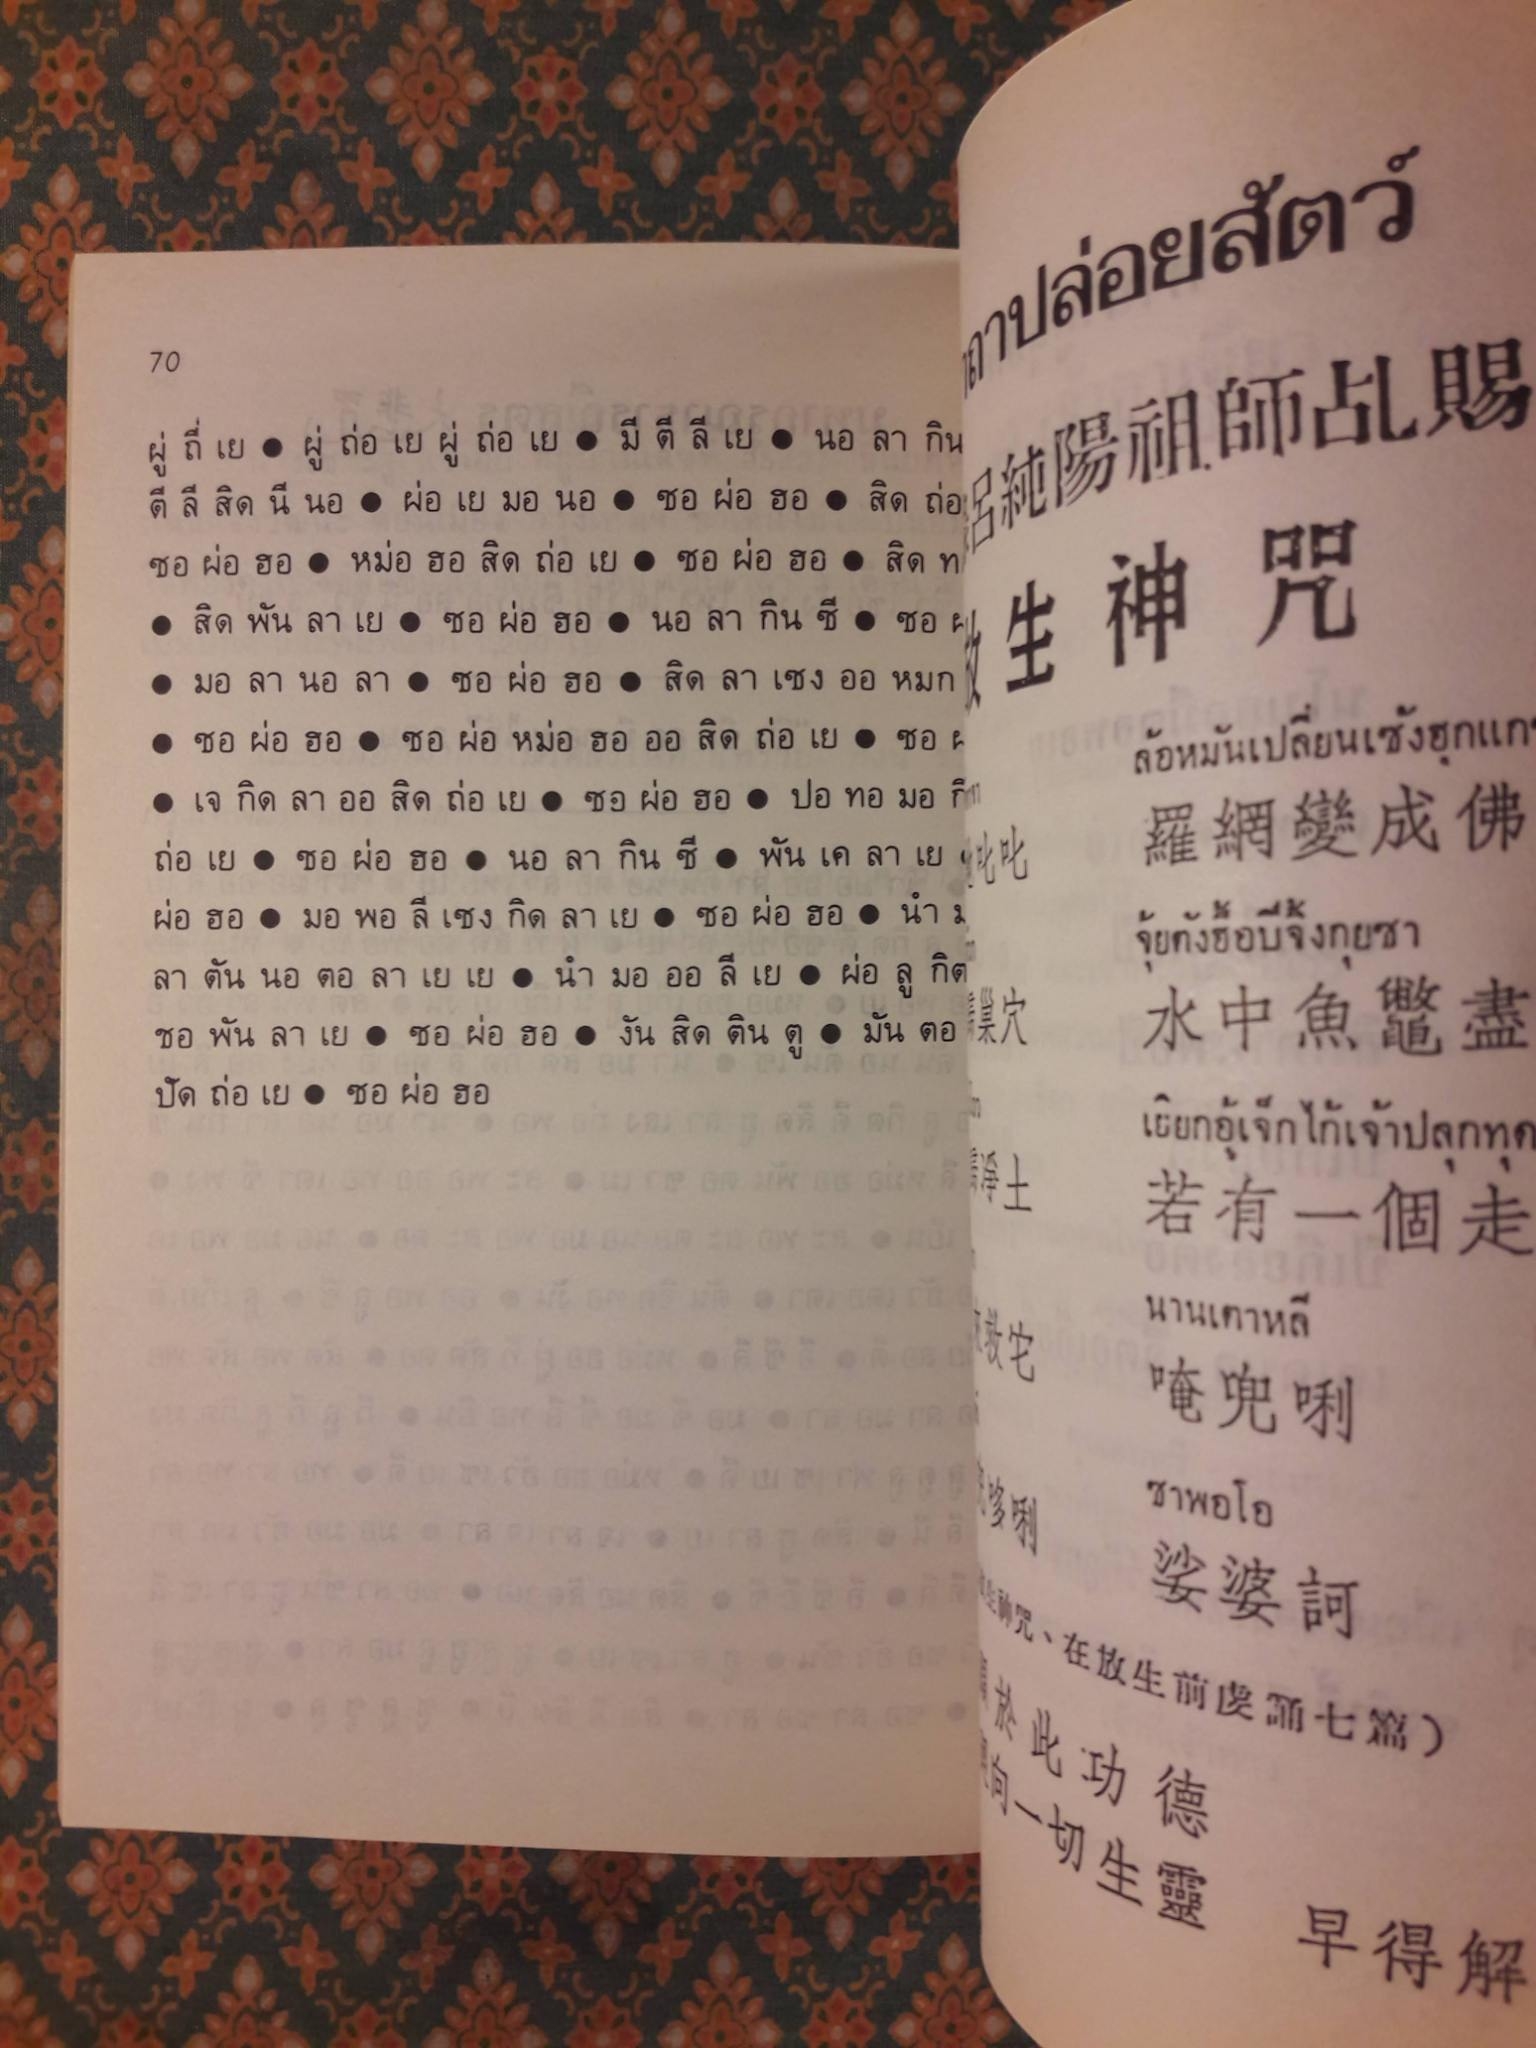 70
ผู่ ถี่ เย ● ผู่ ถ่อ เย ผู่ ถ่อ เย ● มี ตี ลี เย ● นอ ลา กิน
ตี ลี สิด นี นอ ● ผ่อ เย มอ นอ ● ซอ ผ่อ ฮอ ● สิด ถ่อ
ซอ ผ่อ ฮอ ● หม่อ ฮอ สิด ถ่อ เย ● ซอ ผ่อ ฮอ ● สิด
● สิด พัน ลา เย ● ซอ ผ่อ ฮอ ● นอ ลา กิน ซี ● ซอ
● มอ ลา นอ ลา ● ซอ ผ่อ ฮอ ● สิด ลา เซง ออ หมก
● ซอ ผ่อ ฮอ ● ซอ ผ่อ หม่อ ฮอ ออ สิด ถ่อ เย ● ซอ
● เจ กิด ลา ออ สิด ถ่อ เย ● ซอ ผ่อ ฮอ ● ปอ ทอ มอ
ถ่อ เย ● ซอ ผ่อ ฮอ ● นอ ลา กิน ซี ● พัน เค ลา เย
ผ่อ ฮอ ● มอ พอ ลี เซง กิด ลา เย ● ซอ ผ่อ ฮอ ● นำ
ลา ตัน นอ ตอ ลา เย เย ● นำ มอ ออ ลี เย ● ผ่อ ลู กิต
ซอ พัน ลา เย ● ซอ ผ่อ ฮอ ● งัน สิด ติน ตู ● มัน ตอ
ปัด ถ่อ เย ● ซอ ผ่อ ฮอ
ถาปล่อยสัตว์
呂純陽祖師乩賜
放生神咒
ล้อหมันเปลี่ยนเซ้งฮุกแก
叱叱
羅網變成佛
จุ้ยทังฮื้อบีจิ้งกุยซา
巢穴
水中魚鼈盡
เยียกอู้เจ็กไก้เจ้าปลุกทุด
淨土
若有一個走
นานเตาหลี
殺宅
唵兜唎
ซาพอโอ
哆唎
娑婆訶
生神咒、在放生前虔誦七篇）
於此功德
向一切生靈
早得解